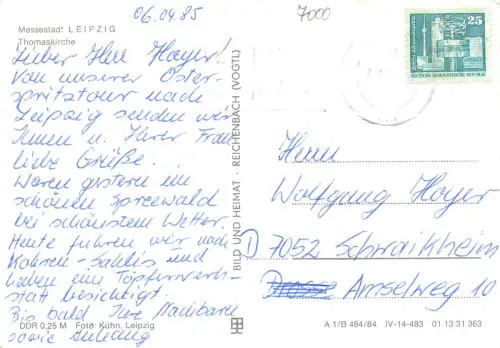 06.04.85
7000
Messestadt LEIPZIG
Thomaskirche
Lieber Herr Hoyer!
Von unserer Oster-
spritztour nach
Leipzig senden wir
Ihnen u. Ihrer Frau
liebe Grüße.
Waren gestern im
schönen Spreewald
bei schönstem Wetter.
Heute fuhren wir nach
Kohren-Sahlis und
haben eine Töpferwerk-
statt besichtigt.
Bis bald Ihre Nachbarn
sowie Anhang
DDR 0,25 M Foto: Kühn, Leipzig
BILD UND HEIMAT · REICHENBACH (VOGTL)
25
DEUTSCHE DEMOKRATISCHE REPUBLIK
Herrn
Wolfgang Hoyer
D 7052 Schwaikheim
Amselweg 10
A 1/B 484/84 IV-14-483 01 13 31 363